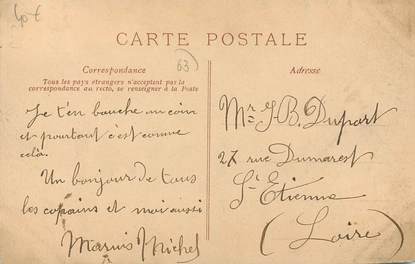 40 €
CARTE POSTALE
Correspondance
Tous les pays étrangers n'acceptent pas la
correspondance au recto, se renseigner à la Poste
63
Je t'en bouche un coin
et pourtant c'est comme
celà.
Un bonjour de tous
les copains et moi aussi
Marius Michel
Adresse
Mr J-B. Dupart
27 rue Dumarest
St Etienne
(Loire)